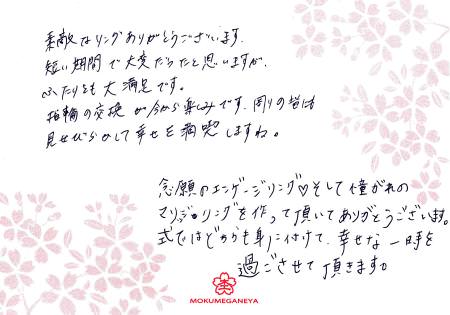 素敵なリングありがとうございます。
短い期間で大変だったと思いますが、
ふたりとも大満足です。
指輪の交換が今から楽しみです。周りの皆に
見せびらかして幸せを満喫しますね。
念願のエンゲージリング♡そして憧がれの
マリッジリングを作って頂いてありがとうございます。
式ではどちらも身に付けて、幸せな一時を
過ごさせて頂きます。
MOKUMEGANEYA